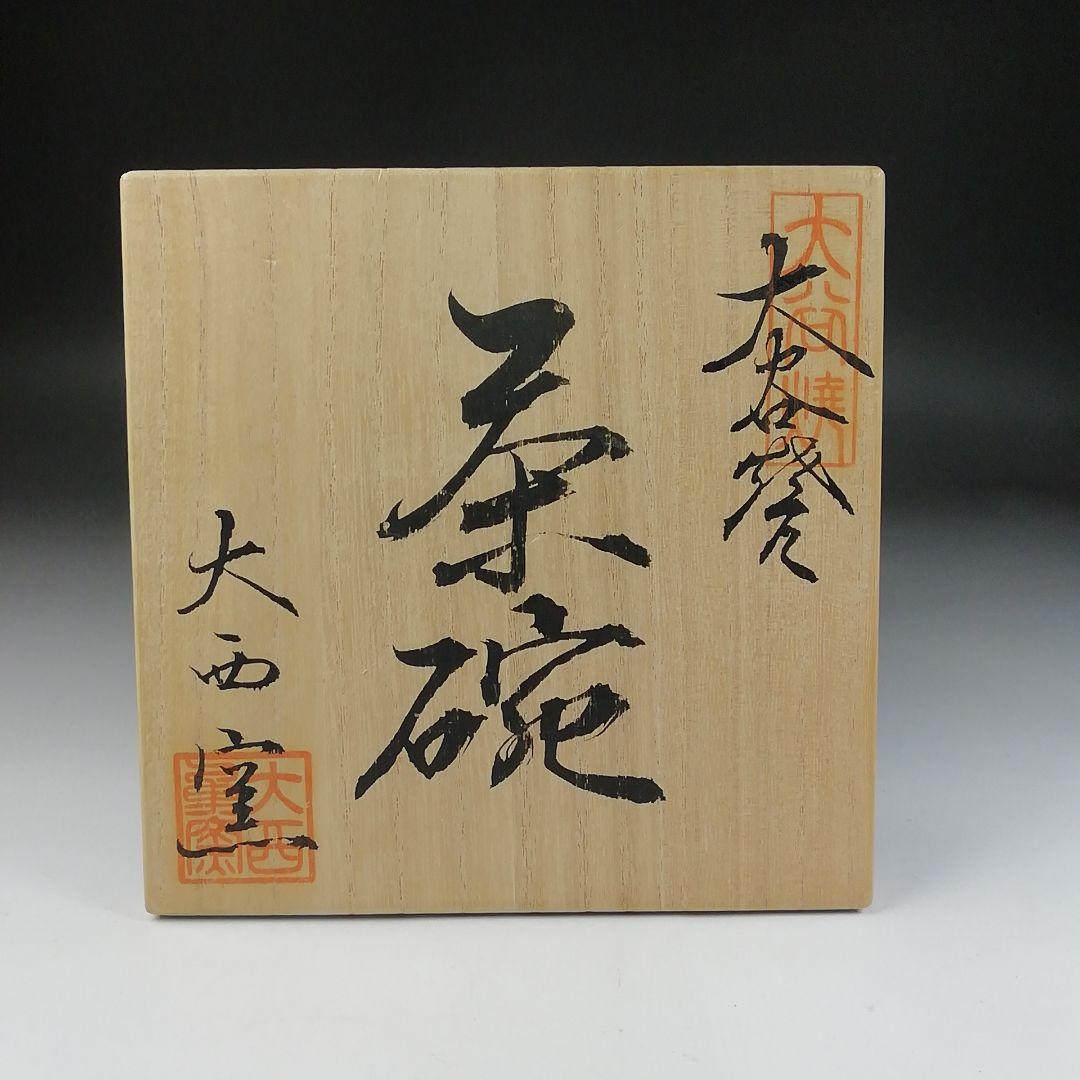 大谷焼
大谷焼
茶碗
大西窯
大西
窯